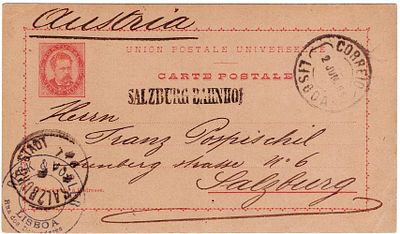 Austria
UNION POSTALE UNIVERSELLE
CARTE POSTALE
CORREIO
2 JUN
LISBOA
SALZBURG BAHNHOF
Herrn
Franz Pospischel
strasse No 6
Salzburg
SALZBURG STADT
LISBOA